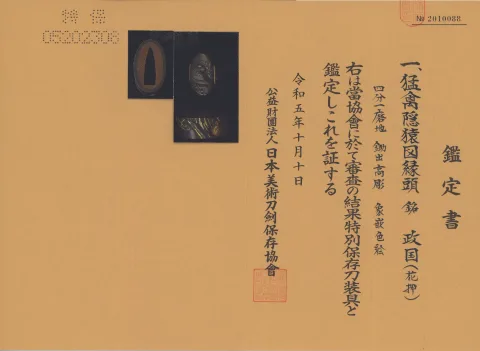 特保
05202306
№ 2010088
鑑定書
一、猛禽隠猿図縁頭 銘 政国(花押)
四分一磨地 鋤出高彫 象嵌色絵
右は當協會に於て審査の結果特別保存刀装具と
鑑定しこれを証する
令和五年十月十日
公益財團法人 日本美術刀剣保存協會